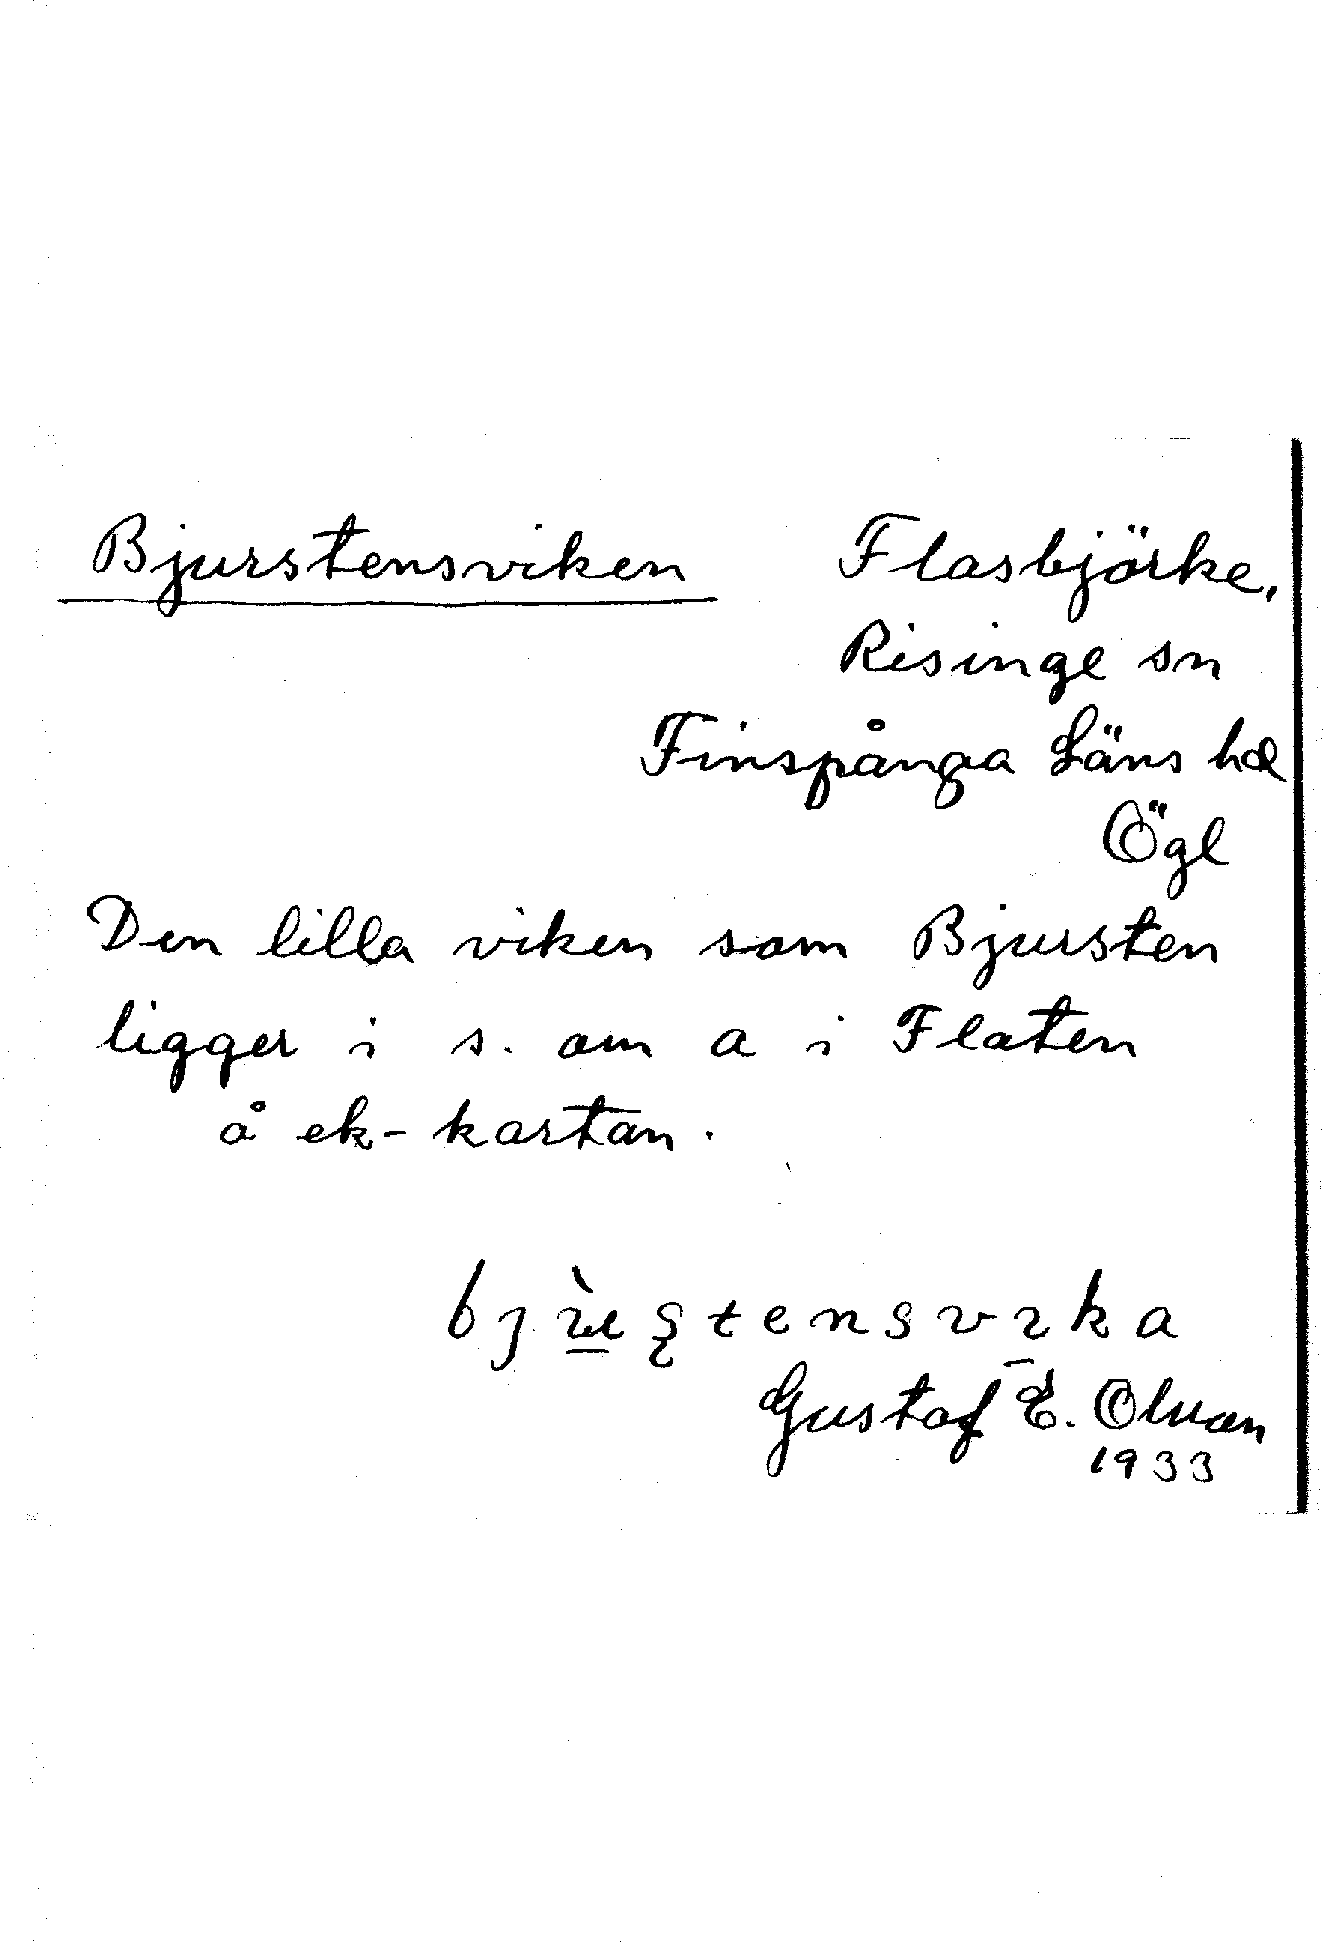 Bjurstensviken Flasbjörke,
Risinge sn
Finspånga Läns hd
Ögl
Den lilla viken som Bjursten
ligger i s. om a i Flaten
å ek-kartan.
Gustaf E.
1933